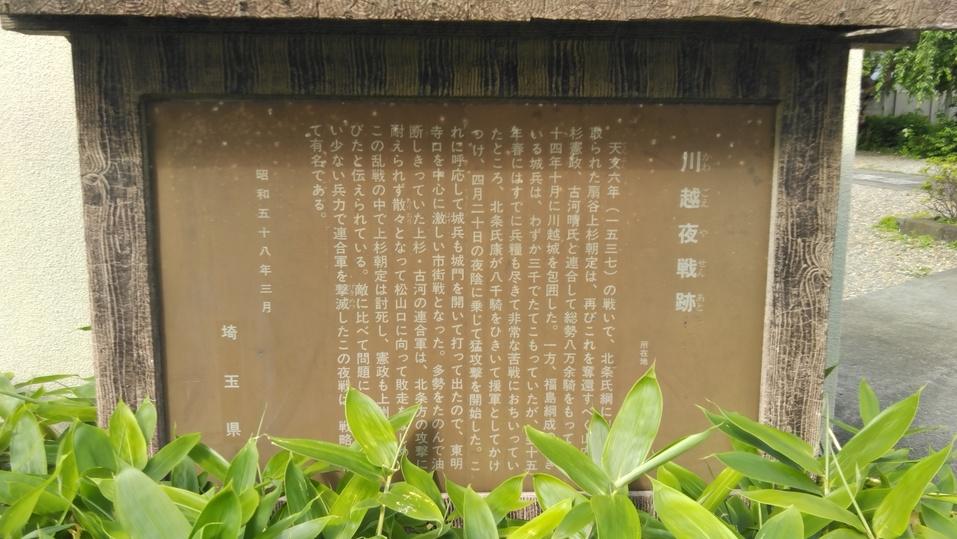 川越夜戦跡
かわごえやせんあと
所在地
天文六年（一五三七）の戦いで、北条氏綱に
取られた扇谷上杉朝定は、再びこれを奪還すべく山
杉憲政、古河晴氏と連合して総勢八万余騎をもって
十四年十月に川越城を包囲した。一方、福島綱成
いる城兵は、わずか三千でたてこもっていたが、 十五
年春にはすでに兵糧も尽きて非常な苦戦におちいってい
たところ、北条氏康が八千騎をひきいて援軍としてかけ
つけ、四月二十日の夜陰に乗じて猛攻撃を開始した。こ
れに呼応して城兵も城門を開いて打って出たので、東明
寺口を中心に激しい市街戦となった。多勢をたのんで油
断しきっていた上杉・古河の連合軍は、北条方の攻撃に
耐えられず散々となって松山口に向って敗走
この乱戦の中で上杉朝定は討死し、憲政も上
びたと伝えられている。敵に比べて問題に
い少ない兵力で連合軍を撃滅したこの夜戦は、戦略
て有名である。
昭和五十八年三月
埼玉県